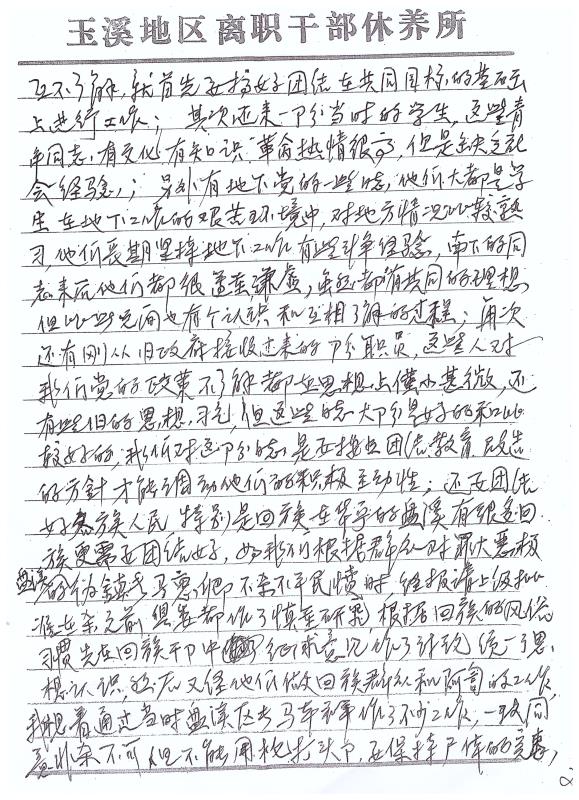 玉溪地区离职干部休养所
互不了解，我首先要搞好团结在共同目标的基础
上进行工作；其次还来一部分当时的学生，这些青
年同志，有文化有知识，革命热情很高，但是缺乏社
会经验；另外有地下党的一些同志，他们大都是学
生在地下工作的艰苦环境中，对地方情况比较熟
习，他们长期坚持地下工作有些斗争经验，南下的同
志来后他们都很尊重谦虚，虽然都有共同的理想
但彼此之间也有个认识和互相了解的过程；再次
还有刚从旧政府接收过来的部分职员，这些人对
我们党的政策不了解都在思想上
有些旧的思想习气，但这些同志大部分是好的和比
较好的，我们对这部分同志是要按照团结教育改造
的方针才能调动他们的积极主动性；还要团结
好各族人民，特别是回族，在华宁的盘溪有很多回
族更需要团结好，如我们根据群众对罪大恶极
盘溪的伪镇长马惠卿不杀不平民愤时，经报请上级批
准在杀之前县委都作了慎重研究，根据回族的风俗
习惯先在回族干部中征求意见作了讨论统一了思
想认识，这后又经他们做回族群众和阿訇的工作，
通过当时盘溪区长马 作了不少工作，一致同
意非杀不可但不能用枪打头部，要保持尸体的完整，
2